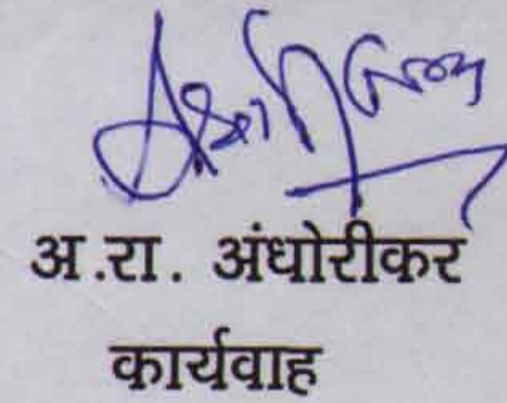 अ.रा. अंधोरीकर
कार्यवाह